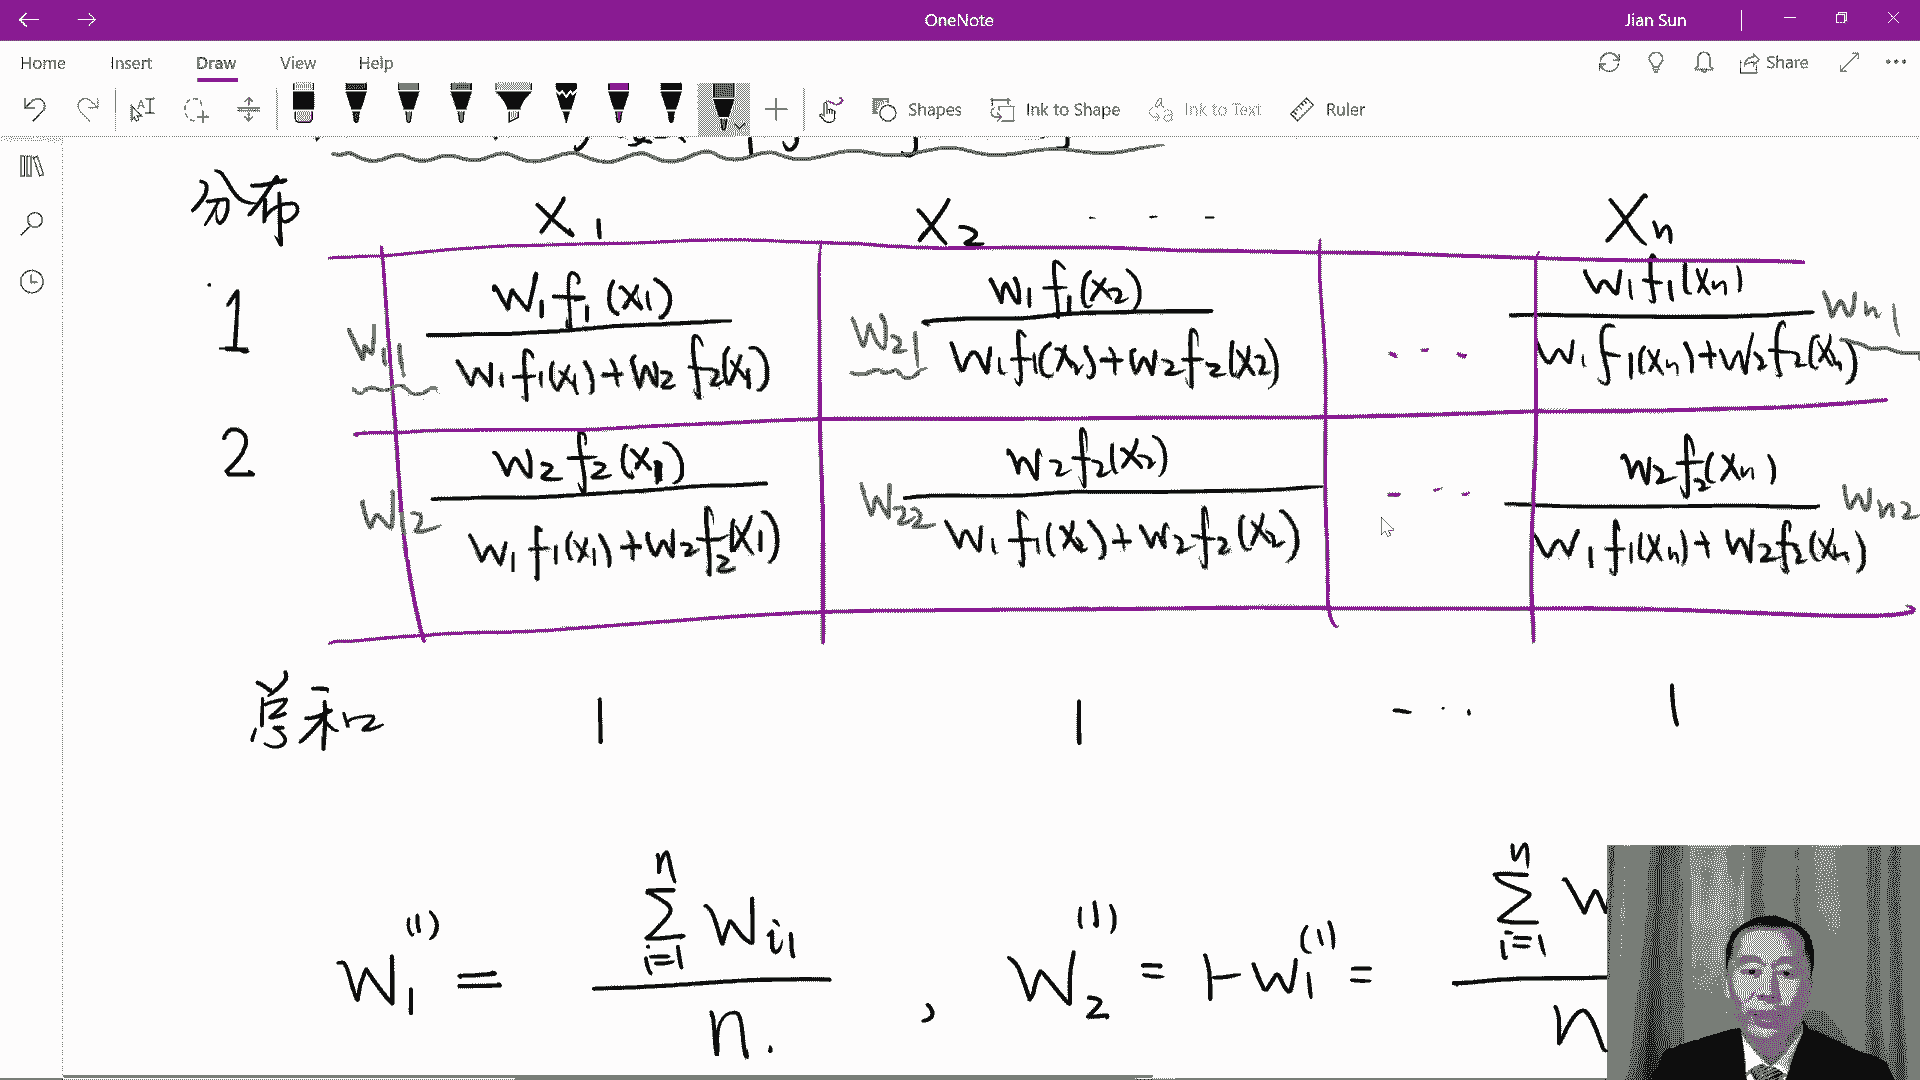 OneNote
Jian Sun
Home Insert Draw View Help
Share
Shapes Ink to Shape Ink to Text Ruler
分布 X1 X2 - - - Xn
1 W11 W1f1(X1) / W1f1(X1)+W2f2(X1) W21 W1f1(X2) / W1f1(X2)+W2f2(X2) ... W1f1(Xn) / W1f1(Xn)+W2f2(Xn) Wn1
2 W12 W2f2(X1) / W1f1(X1)+W2f2(X1) W22 W2f2(X2) / W1f1(X2)+W2f2(X2) ... W2f2(Xn) / W1f1(Xn)+W2f2(Xn) Wn2
总和 1 1 ... 1
W1^(1) = Σ_{i=1}^{n} Wi1 / n. , W2^(1) = 1-W1^(1) = Σ_{i=1}^{n} W / n